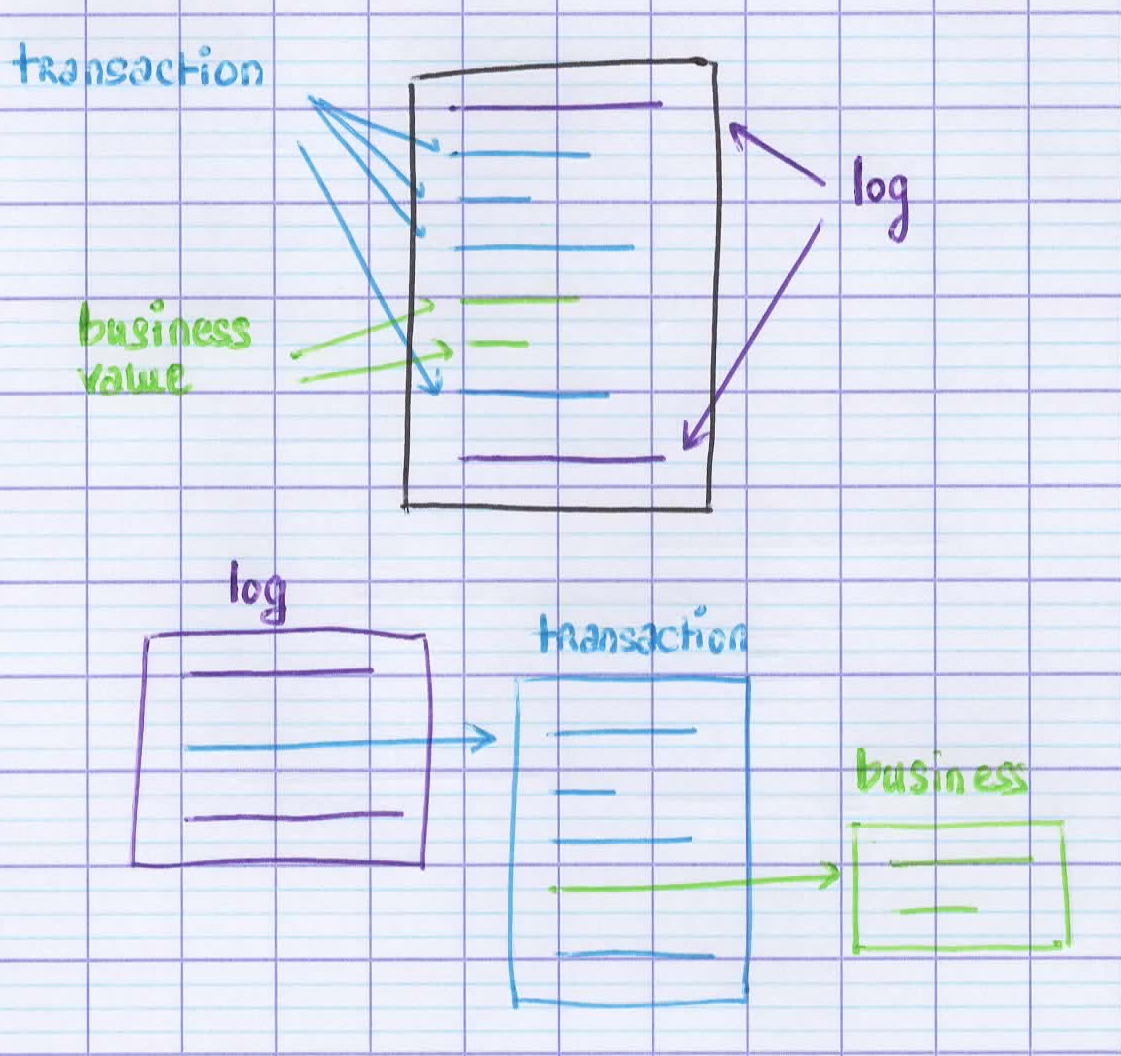 transaction
log
business
value
log
transaction
business